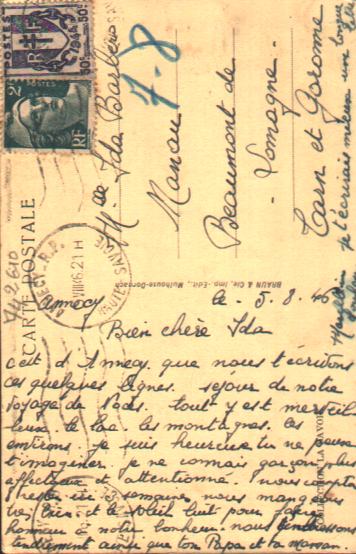 POSTES
2F
RF
CARTE POSTALE
7-8
Ida Barbe
Manau
Beaumont de
Lomagne
Tarn et Garonne
BRAUN & Cie, Imp.-Edit., Mulhouse-Dornach
ANNECY-R.P.
HAUTE SAVOIE
Annecy le 5.8.46
Bien chère Ida
C'est d'Annecy que nous t'écrivons
ces quelques lignes. séjour de notre
voyage de Noces. tout y est merveil
leux. le lac. les montagnes. les
environs. je suis heureuse tu ne peux
t'imaginer. je ne connais garçon plus
affectueux et attentionné. nous comptons
rester ici semaine, nous mangeons
très bien et le soleil luit pour faire
honneur à notre bonheur. nous t'embrassons
tendrement ainsi que ton Papa et ta maman.
je t'écrirai mieux une longue